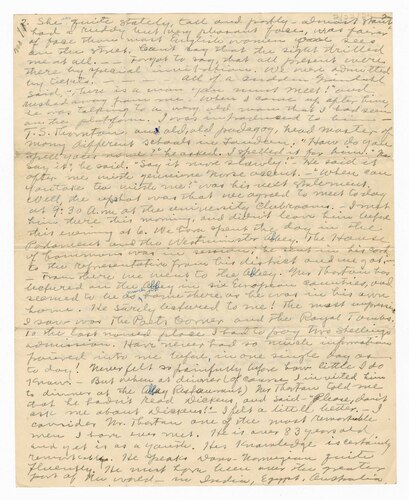 2. She quite stately, tall and portly - almost stout
had a ruddy but very pleasant face, was far
of face than most Anglos women one sees
on the street. Can't say that the sight thrilled
me at all. — Forgot to say that all present were
there by special invitation. We were admitted
by cards. — All of a sudden Grinsted
said, "There is a man you must meet!" and
rushed away from me. When I came up after him,
he was talking to a very old man that I had seen
on the platform. I was introduced to him —
T. S. Thornton, an old, old pedagog, head master of
many different schools in London. "How do you
spell your name?" he asked. I spelled it for him. "Now
say it", he said. "Say it now slowly". He said it
after me with genuine Norse accent. - "When can
you take tea with me?" was his next statement.
Well, the upshot was that we agreed to meet today
at 9:30 A.M. at the university Clubrooms. I met
him there this morning, and didn't leave him before
this evening at 6. We have spent the day in the
Parliament and the Westminster Abbey. The House
of Commons was in session, he
to the representative from his district and we got in.
From there we went to the Abbey. Mr. Thornton has
lectured on the Abbey in six European countries, and
seemed to be as home there as he was in his own
home. He surely catered to me! The most impressive
I saw was the Poets Corner and the Royal Tombs.
To the last named place I had to pay two shillings
admission. Have never had so much information
poured into me before, in one single day as
to-day! Never felt so painfully before how little I do
know. - But when at dinner, of course I invited him
to dinner at the Abbey Restaurant, Mr. Thornton told me
that he hadn't read Dickens, and said - "Please, don't
ask me about Dickens!" I felt a little better. - I
consider Mr. Thornton one of the most remarkable
men I have ever met. He is over 83 years old
and yet is as a youth. His knowledge is certainly
remarkable. He speaks Dano-Norwegian quite
fluently. He must have been over the greater
part of the world - in India, Egypt, Australia